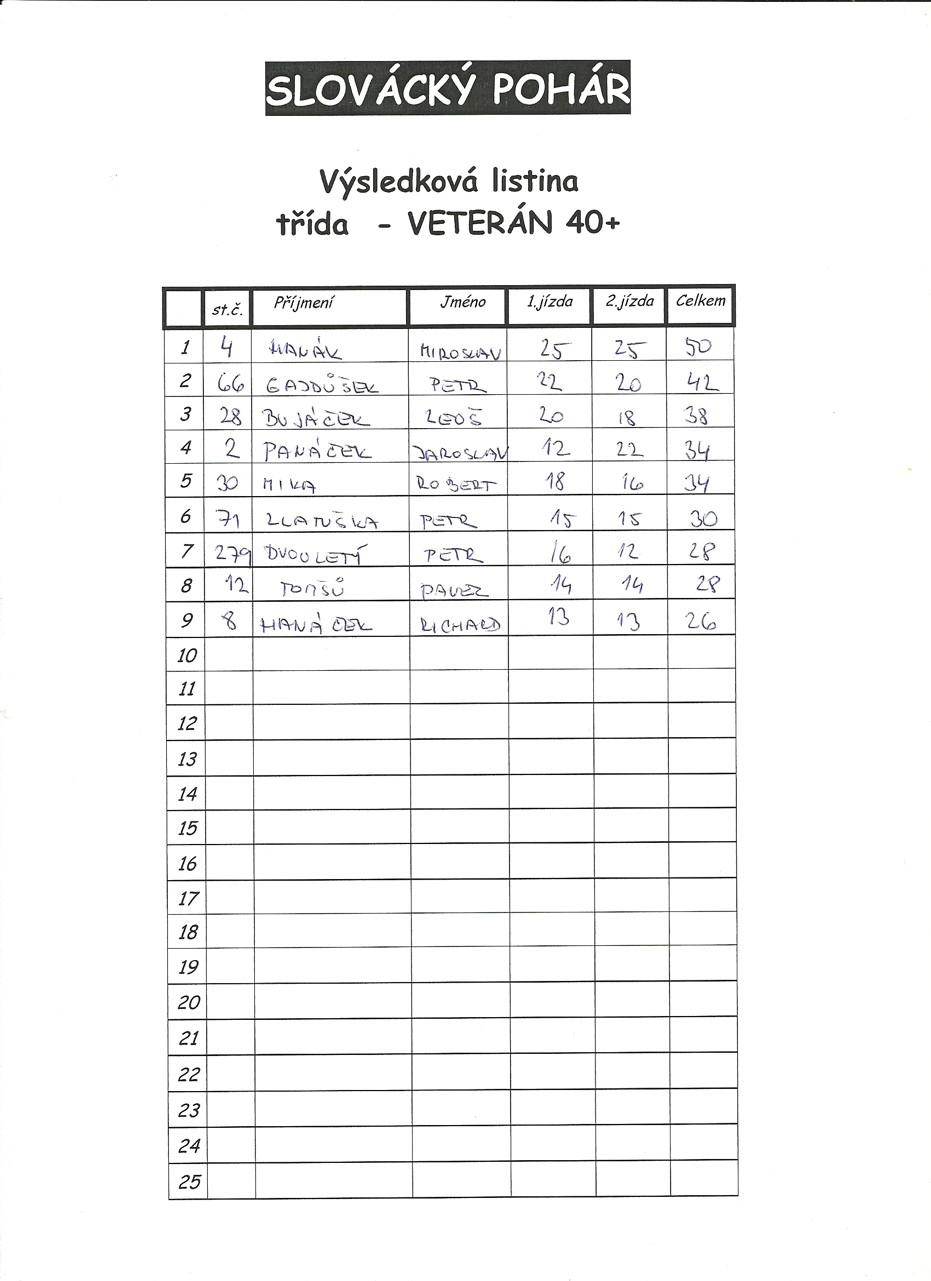 SLOVÁCKÝ POHÁR
Výsledková listina
třída - VETERÁN 40+
st.č. Příjmení Jméno 1.jízda 2.jízda Celkem
1 4 HANÁK MIROSLAV 25 25 50
2 66 GAJDŮŠEK PETR 22 20 42
3 28 BUJÁČEK LEOŠ 20 18 38
4 2 PANÁČEK JAROSLAV 12 22 34
5 30 MIKA ROBERT 18 16 34
6 71 ZLATUŠKA PETR 15 15 30
7 279 DVOULETÝ PETR 16 12 28
8 12 TOMŠŮ PAVEL 14 14 28
9 8 HANÁČEK RICHARD 13 13 26
10
11
12
13
14
15
16
17
18
19
20
21
22
23
24
25